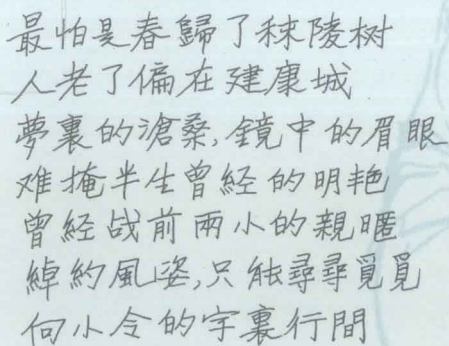 最怕是春歸了秣陵树
人老了偏在建康城
夢裏的滄桑,鏡中的眉眼
难掩半生曾経的明艳
曾経战前兩小的親暱
綽約風姿,只能尋尋覓覓
向小令的字裏行間